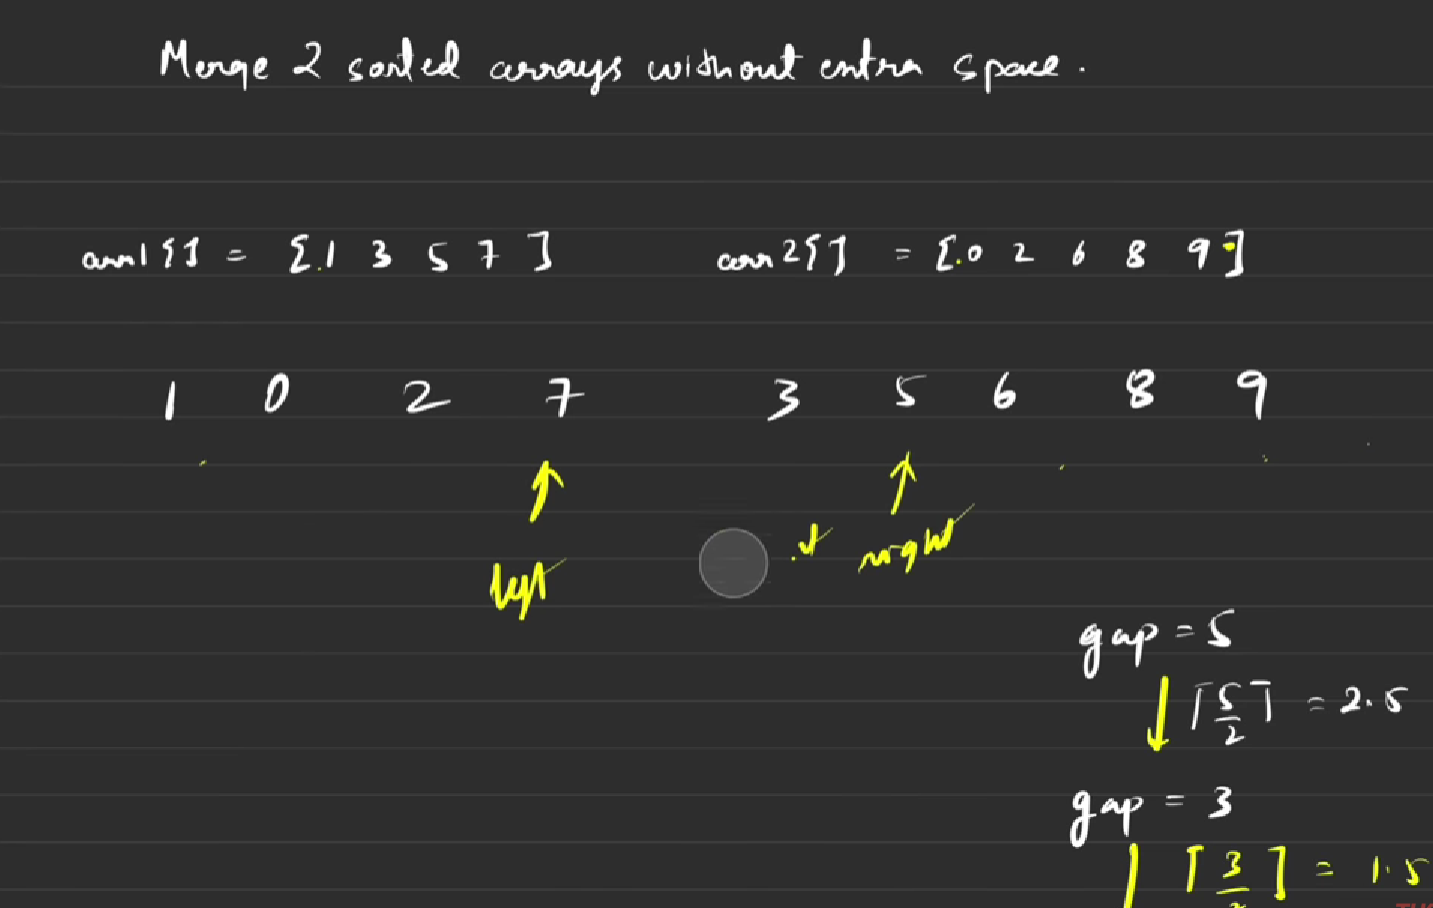 Merge 2 sorted arrays without extra space.
arr1[] = [1 3 5 7] arr2[] = [0 2 6 8 9]
1 0 2 7 3 5 6 8 9
left right
gap = 5
⌈5/2⌉ = 2.5
gap = 3
⌈3/2⌉ = 1.5